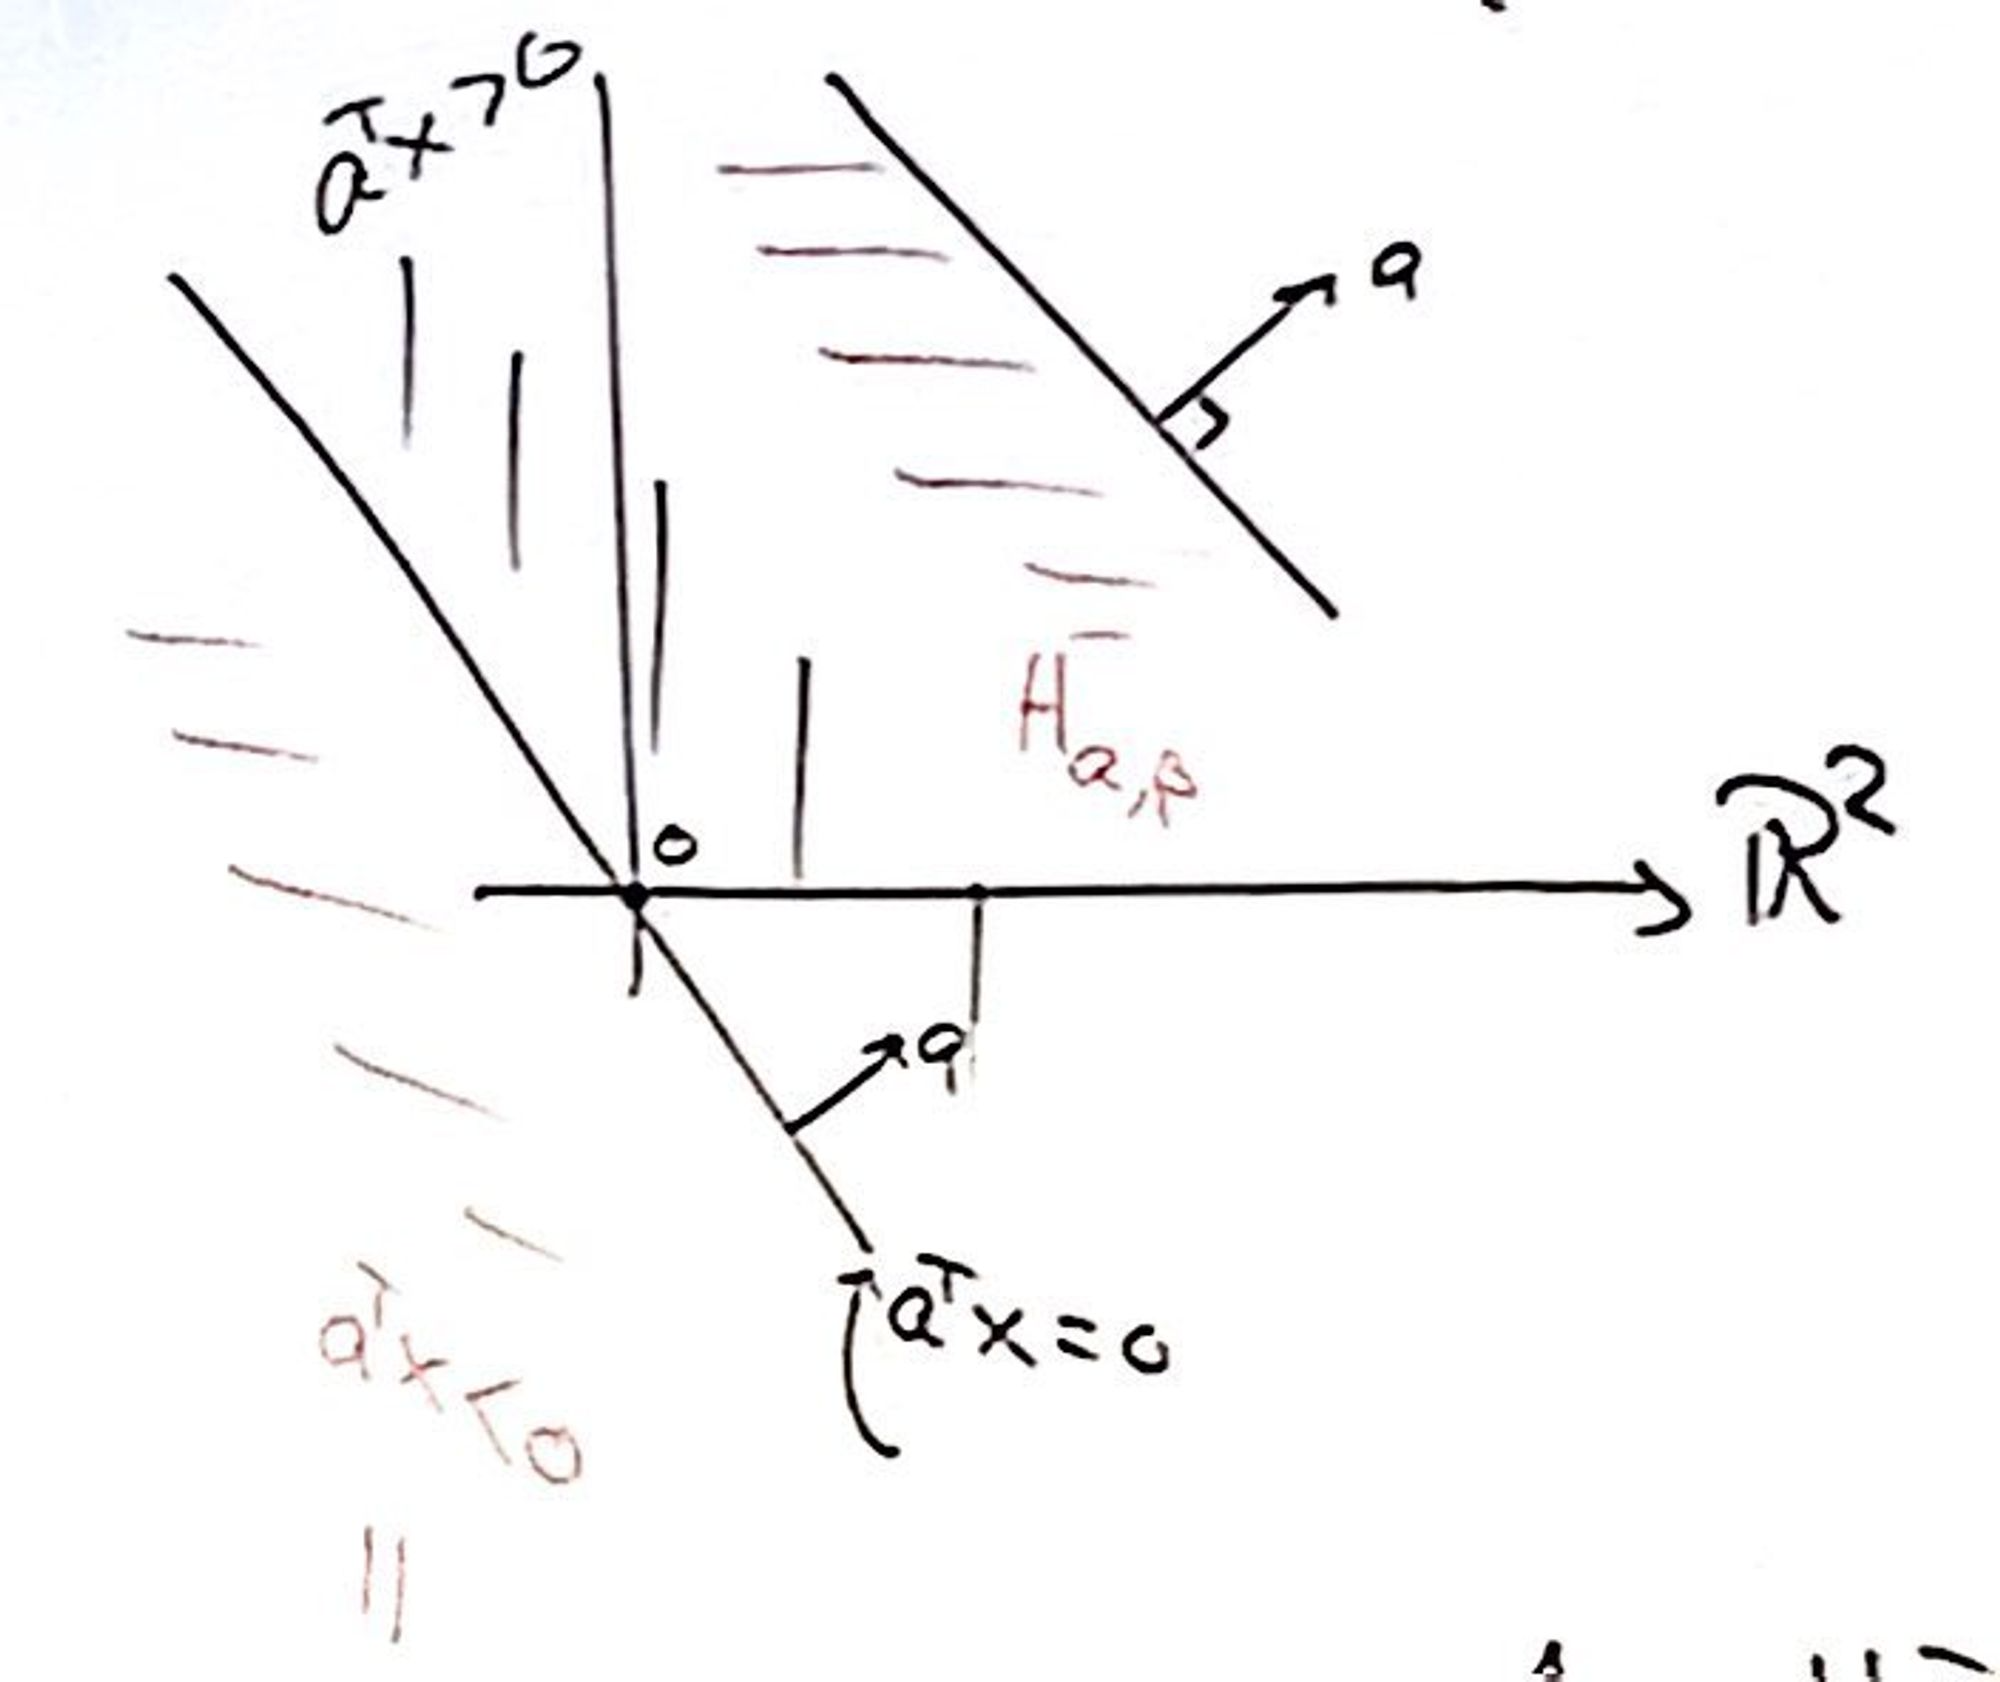 aᵀx>0
a
H⁻
a,β
ℝ²
0
a
aᵀx=0
aᵀx<0
||